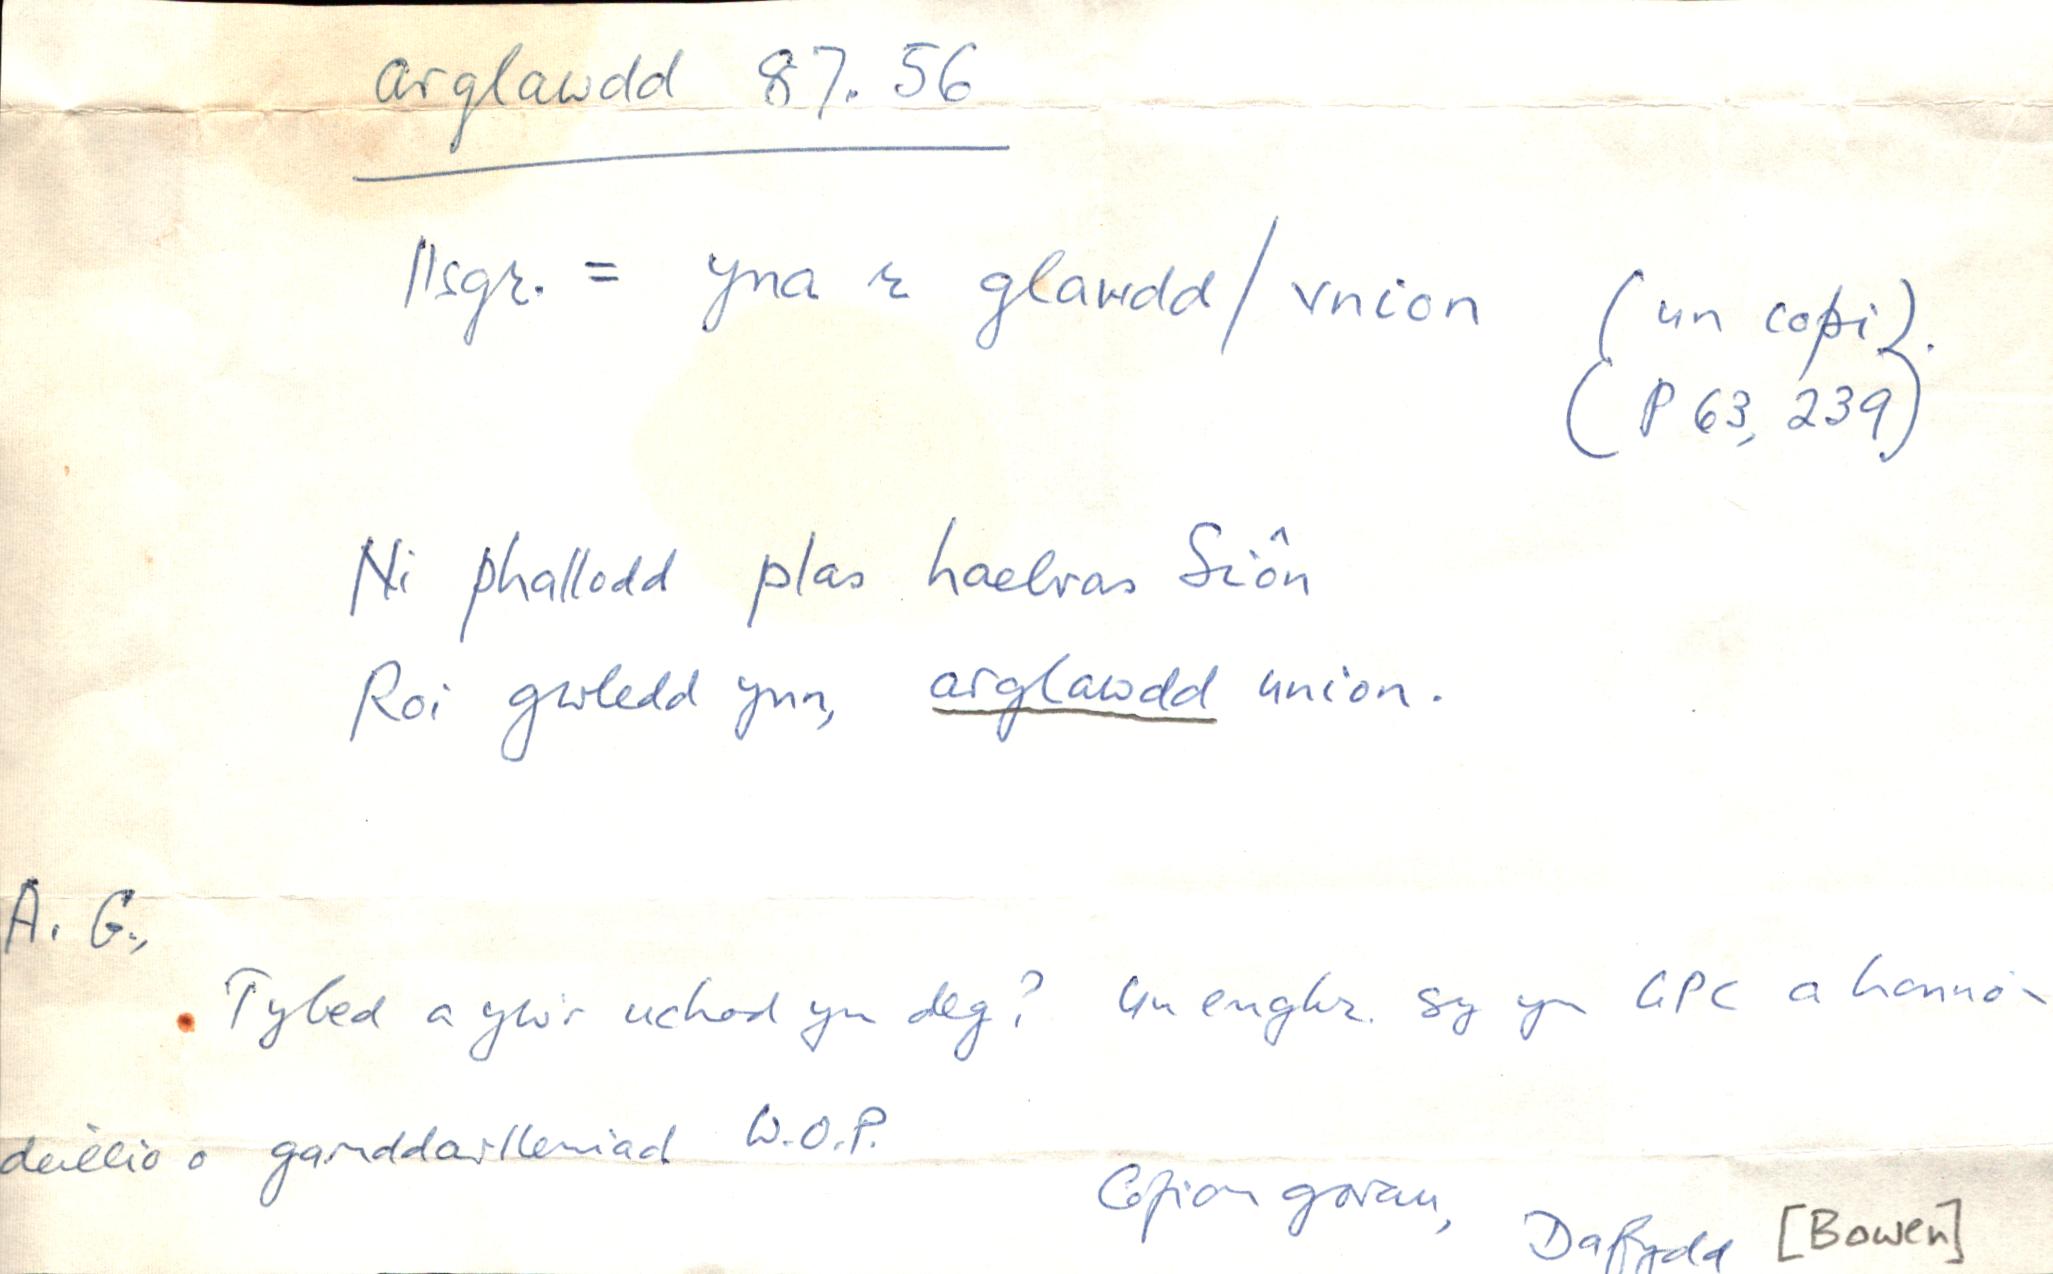 arglawdd 87.56
llsgr. = yna r glawdd / vnion (un copi).
(P 63, 239)
Ni phallodd plas haelvas Siôn
Roi gwledd ynn, arglawdd union.
A. G.,
Tybed a yw'r uchod yn deg? Un enghr. sy yn GPC a honno'n
deillio o gamddarlleniad W.O.P.
Cofion gorau,
Dafydd [Bowen]